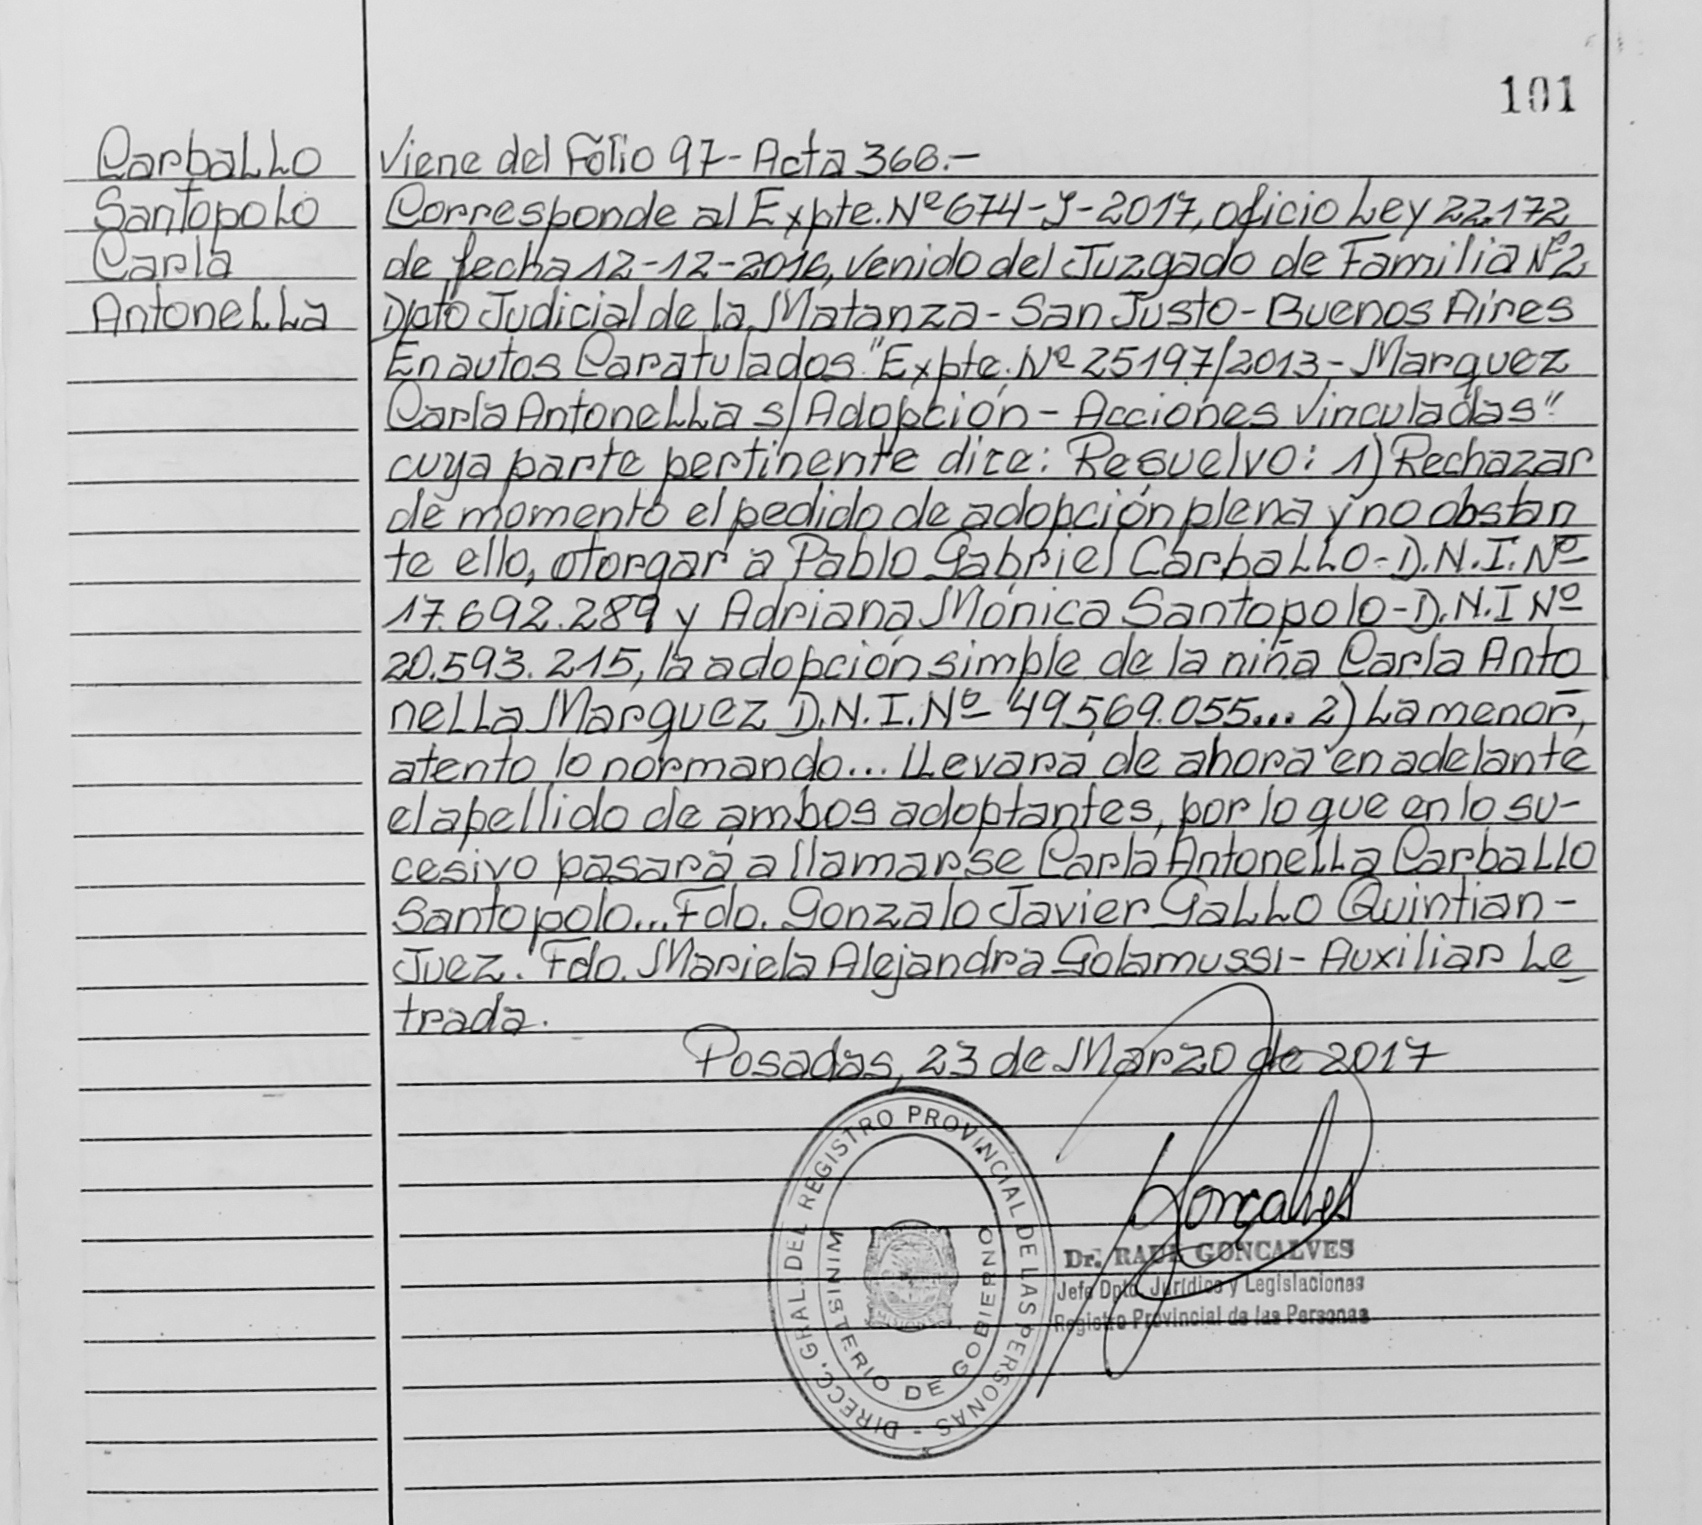 101
Carballo
Santopolo
Carla
Antonella
Viene del Folio 97- Acta 366.-
Corresponde al Expte. Nº 674-J-2017, oficio Ley 22.172
de fecha 12-12-2016, venido del Juzgado de Familia Nº2,
Dpto Judicial de la Matanza - San Justo - Buenos Aires
En autos Caratulados "Expte. Nº 25197/2013 - Marquez
Carla Antonella s/ Adopción - Acciones Vinculadas"
cuya parte pertinente dice: Resuelvo: 1) Rechazar
de momento el pedido de adopción plena y no obstan
te ello, otorgar a Pablo Gabriel Carballo - D.N.I. Nº
17.692.289 y Adriana Mónica Santopolo - D.N.I Nº
20.593.215, la adopción simple de la niña Carla Anto
nella Marquez D.N.I. Nº 49.569.055... 2) La menor,
atento lo normando... llevará de ahora en adelante
el apellido de ambos adoptantes, por lo que en lo su-
cesivo pasará a llamarse Carla Antonella Carballo
Santopolo... Fdo. Gonzalo Javier Gallo Quintian -
Juez. Fdo. Mariela Alejandra Golamussi - Auxiliar Le
trada.
Posadas, 23 de Marzo de 2017
DIRECC. GRAL. DEL REGISTRO PROVINCIAL DE LAS PERSONAS
MINISTERIO DE GOBIERNO
Gonçalves
Dr. RAUL GONCALVES
Jefe Dpto. Jurídico y Legislaciones
Registro Provincial de las Personas